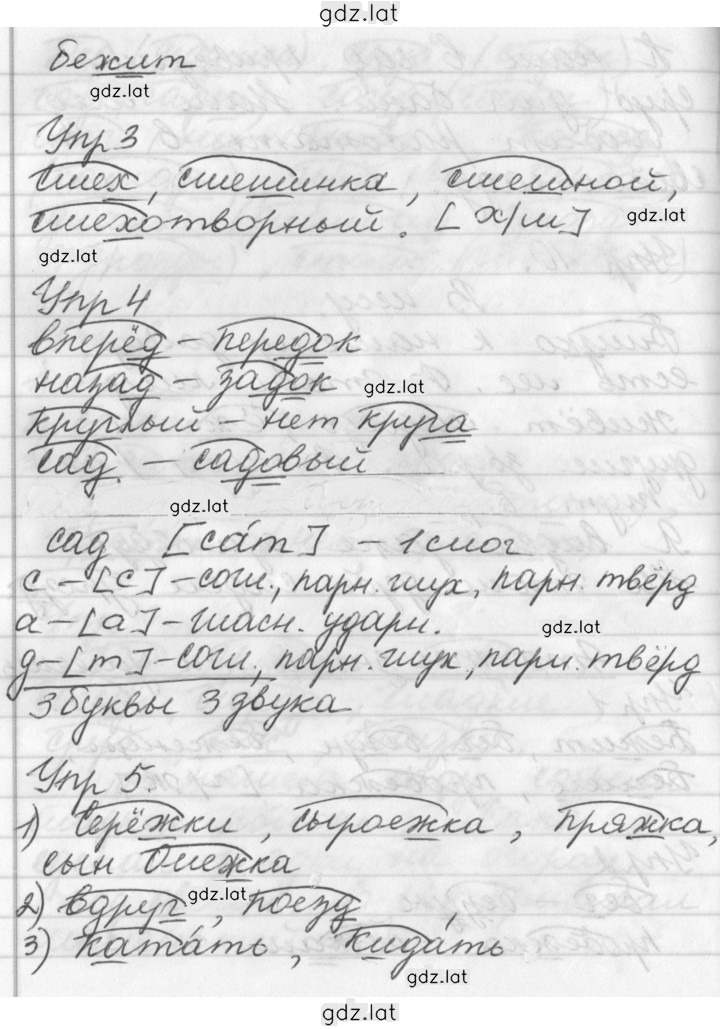 gdz.lat
бежит
gdz.lat
Упр 3
смех, смешинка, смешной,
смехотворный. [х/ш] gdz.lat
gdz.lat
Упр 4
вперёд – передок
назад – задок gdz.lat
круглый – нет круга
сад. – садовый
gdz.lat
сад [са́т] – 1 слог
с – [с] – согл., парн. глух, парн. твёрд
а – [а] – гласн. ударн. gdz.lat
д – [т] – согл., парн. глух, парн. твёрд
3 буквы 3 звука
Упр 5.
1) серёжки, сыроежка, пряжка,
сын Олежка
gdz.lat
2) вдруг, поезд,
3) ката́ть, кида́ть
gdz.lat
gdz.lat